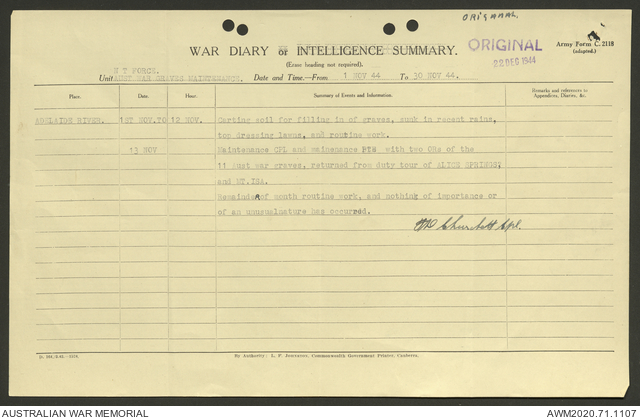 ORIGINAL.
WAR DIARY or INTELLIGENCE SUMMARY.
ORIGINAL
22 DEC 1944
Army Form C. 2118
(adapted.)
(Erase heading not required).
N T FORCE.
Unit AUST WAR GRAVES MAINTENANCE. Date and Time.—From 1 NOV 44 To 30 NOV 44.
Place. Date. Hour. Summary of Events and Information. Remarks and references to
Appendices, Diaries, &c.
ADELAIDE RIVER. 1ST NOV. TO 12 NOV. Carting soil for filling in of graves, sunk in recent rains,
top dressing lawns, and routine work.
13 NOV Maintenance CPL and mainenance PTE with two ORs of the
11 Aust war graves, returned from duty tour of ALICE SPRINGS,
and MT.ISA.
Remainder of month routine work, and nothing of importance or
of an unusualnature has occurred.
Churchett Cpl.
By Authority: L. F. Johnston, Commonwealth Government Printer, Canberra.
AUSTRALIAN WAR MEMORIAL
AWM2020.71.1107